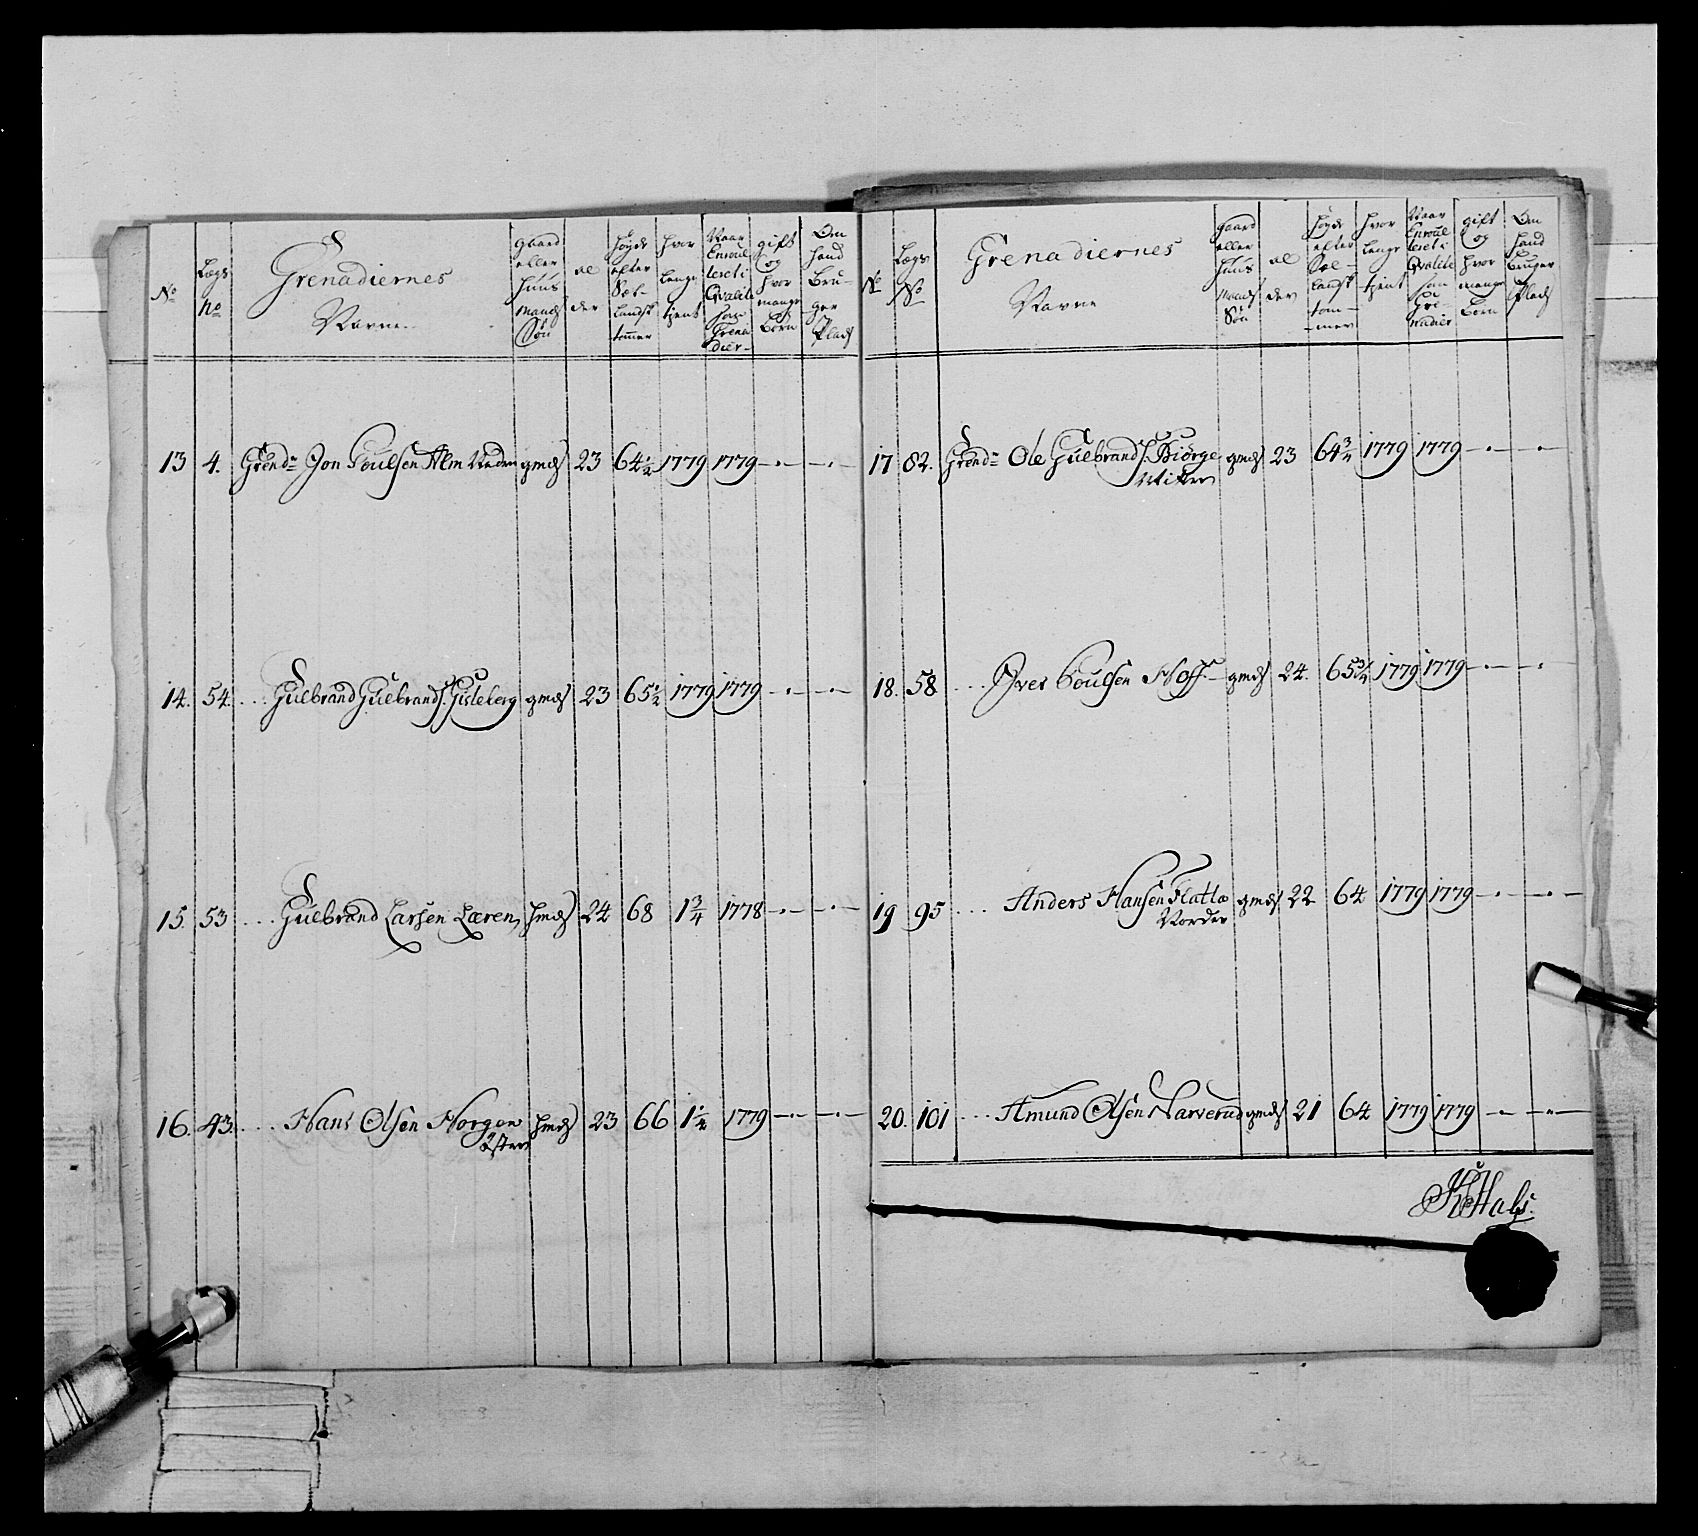 No Lægs No Grenadiernes Navne gaard eller Huus mands Søn al der Høyde efter Sæl- landsk tommer hvor lenge tient Naar Enroul leret i Qvalite som Grena dier gift og hvor mange Børn Om hand Bru- ger Plads
13 4. Grend:r Jon Poulsen Alm Neden gmds 23 64½ 1779 1779
14. 54. Gulbrand Gulbrands: Gisleberg gmds 23 65½ 1779 1779
15. 53 Gulbrand Larsen Læren hmds 24 68 1¾ 1778
16. 43. Hans Olsen Horgen hmds 23 66 1½ 1779
Østre
No Lægs No Grenadiernes Navne gaard eller Huus mands Søn al der Høyde efter Sæl- lands tom- mer hvor lenge tient Naar Enroul leret i Qvalite som Gre- nadier gift og hvor mange Børn Om hand Bruger Plads
17 82. Grend:r Ole Gulbrands: Biørge gmds 23 64¾ 1779 1779
18. 58 Iver Poulsen Hoff gmds 24. 65¾ 1779 1779
19 95 Anders Hansen Flatla gmds 22 64 1779 1779
Nordre
20. 101 Amund Olsen Narverud gmds 21 64 1779 1779